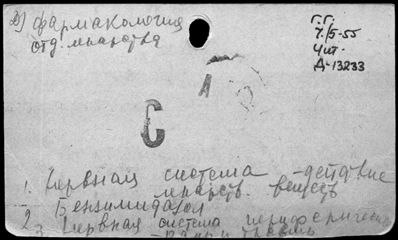 2) фармакология
отд. лекарства
Г.Г.
7/5-55
Чит.
Д-13233
С А
1. Нервная система - действие
лекарств. веществ
Бензимидазол
2. Нервная система периферическ